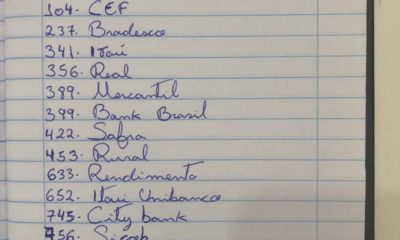 104. CEF
237. Bradesco
341. Itaú
356. Real
389. Mercantil
399. Bank Brasil
422. Safra
453. Rural
633. Rendimento
652. Itaú Unibanco
745. City bank
756. Sicoob